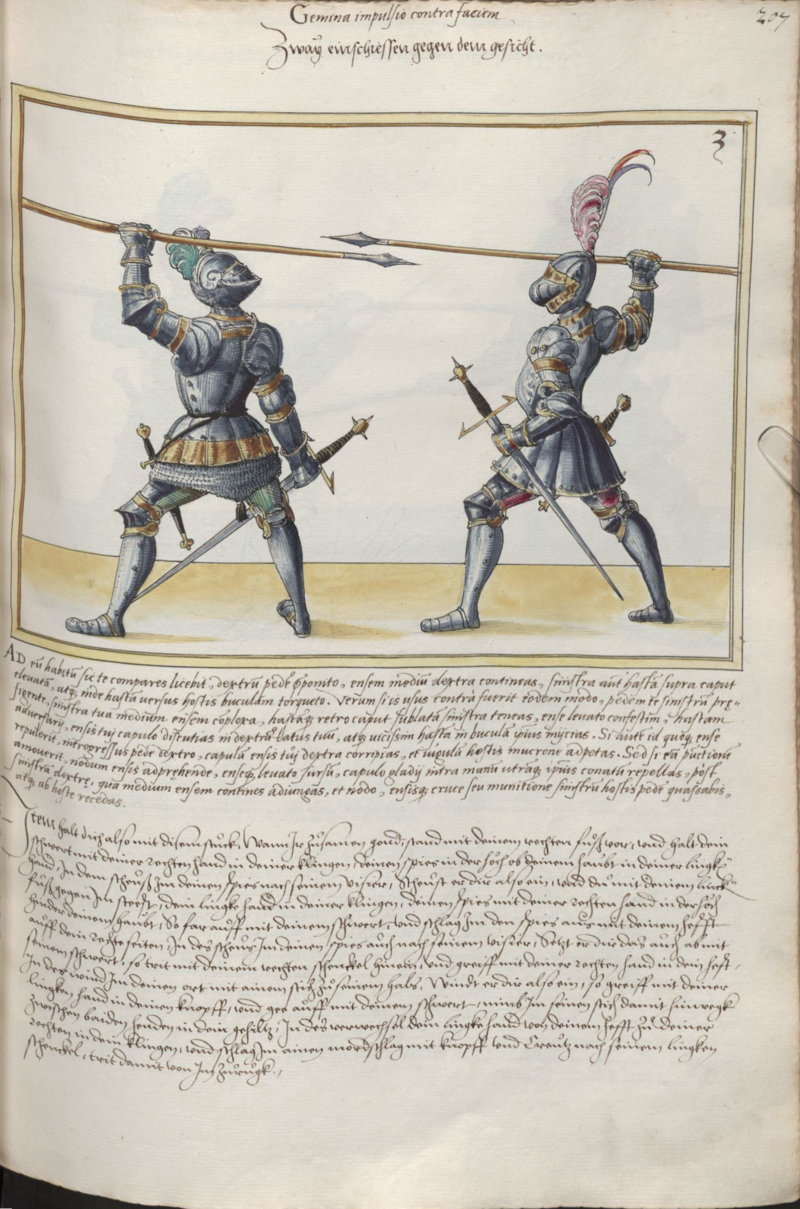 Gemina impulsio contra faciem
207
Zway einschiessen gegen dem gesicht.
3
AD eũ habitũ sic te compares licebit, dextrũ pedẽ p̱ponito, ensem mediũ dextra contineas, sinistra aũt hastã supra caput
eleuatã, atq̃ inde hastã uersus hostis buculam torqueto. Verum si is usus contra fuerit eodem modo, pedem te sinistrũ pre-
figente, sinistra tua medium ensem cõplexa, hastãq̃ retro caput sublatã sinistra teneas, ense leuato confestim, hastam
aduersarij, ensis tuj capulo discutias in dextrũ latus tuũ, atq̃ uicissim hastã in buculã ipsius inijcias. Si aute id quoq̃ ense
repulerit, introgressus pede dextro, capulũ ensis tuj dextra corripias, et iugulũ hostis mucrone adpetas. Sed si eã punctionẽ
amouerit, nodum ensis adprehende, enseq̃ leuato sursũ, capulo gladij intra manũ utrãq̃ ipsius conatũ repellas, post
sinistrã dextre, qua medium ensem contines adiungas, et nodo, ensisq̃ cruce seu munitione sinistrũ hostis pedẽ quassabis,
atq̃ ab hoste recedas.
Item halt dich also mit disem stuck, Wann Ir zusamen gond, stand mit deinem rechten fuß vor, vnd halt dein
schwert mit deiner rechten hand in deiner klingen, deinen spies in der höch ob deinem haubt in deiner lingkẽ
hand, In dem scheuß Im deinen spies nach seinem visier, Scheust er dir also ein, vnd du mit deinem linckẽ
fuß gegen Im steest, dein lingke hand in deiner klingen, deinen spies mit deiner rechten hand in der höch
hinder deinem haubt, So far auff mit deinem schwert, vnd schlag Im den spies aus mit deinem hefft
auff dein rechte seiten, In des scheuß Im deinen spies auch nach seinem visier, Setzt er dir das auch ab mit
seinem schwert, so trit mit deinem rechten schenckel hinein, vnd greiff mit deiner rechten hand in dein hefft,
In des wind Im deinen ort mit ainem stich zu seinem hals, Windt er dir also ein, so greiff mit deiner
lingken hand in deinen knopff, vnd gee auff mit deinem schwert, nimb Im seinen stich damit hinwegk
zwischen baiden henden in dein gehiltz, In des verwechsel dein lingke hand von deinem hefft zu deiner
rechten in dein klingen, vnd schlag Im ainen mordschlag mit knopff vnd Creutz nach seinem lingken
schenckel, trit damit von Im zurugk.